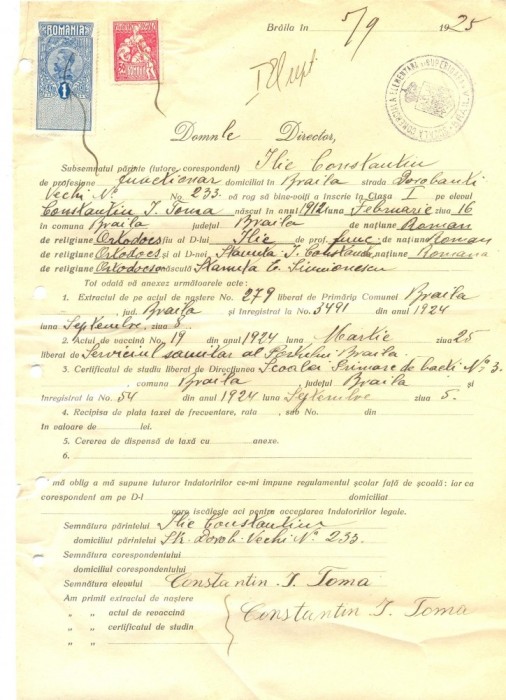 Brăila în 5/9 1925
ROMANIA
1
Domnle Director,
Subsemnatul părinte (tutore, corespondent) Ilie Constantin
de profesiune funcționar domiciliat în Braila strada Dorobanti
Vechi No. No. 233. vă rog să bine-voiți a înscrie în Clasa I pe elevul
Constantin I. Toma născut în anul 1912 luna Februarie ziua 16
în comuna Braila județul Braila de națiune Roman
de religiune Ortodocs fiu al D-lui Ilie de prof. func. de națiune Roman
de religiune Ortodocs și al D-nei Stamita I. Constantin de națiune Romana
de religiune Ortodocsa născută Stamita C. Simionescu
Tot odală să anexez următoarele acte:
1. Extractul de pe actul de naștere No. 279 liberat de Primăria Comunei Braila
jud. Braila și înregistrat la No. 3491 din anul 1924
luna Septembre ziua 5.
2. Actul de vaccină No. 19 din anul 1924 luna Martie ziua 25
liberat de Serviciul sanitar al Portului Braila.
3. Certificatul de studiu liberat de Direcțiunea Scoalei Primare de baeti No. 3.
, comuna Braila județul Braila și
înregistrat la No. 54 din anul 1924 luna Septembre ziua 5.
4. Recipisa de plata taxei de frecuentare, rata , sub No. din
în valoare de lei.
5. Cererea de dispensă de taxă cu anexe.
6.
mă oblig a mă supune tuturor îndatoririlor ce-mi impune regulamentul școlar față de școală: iar ca
corespondent am pe D-l domiciliat
care iscălește aci pentru acceptarea îndatoririlor legale.
Semnătura părintelui Ilie Constantin
domiciliul părintelui Str. Dorob. Vechi No. 233.
Semnătura corespondentului
domiciliul corespondentului
Semnătura elevului Constantin I. Toma
Am primit extractul de naștere
" " actul de revaccină Constantin I. Toma
" " certificatul de studiu
" "